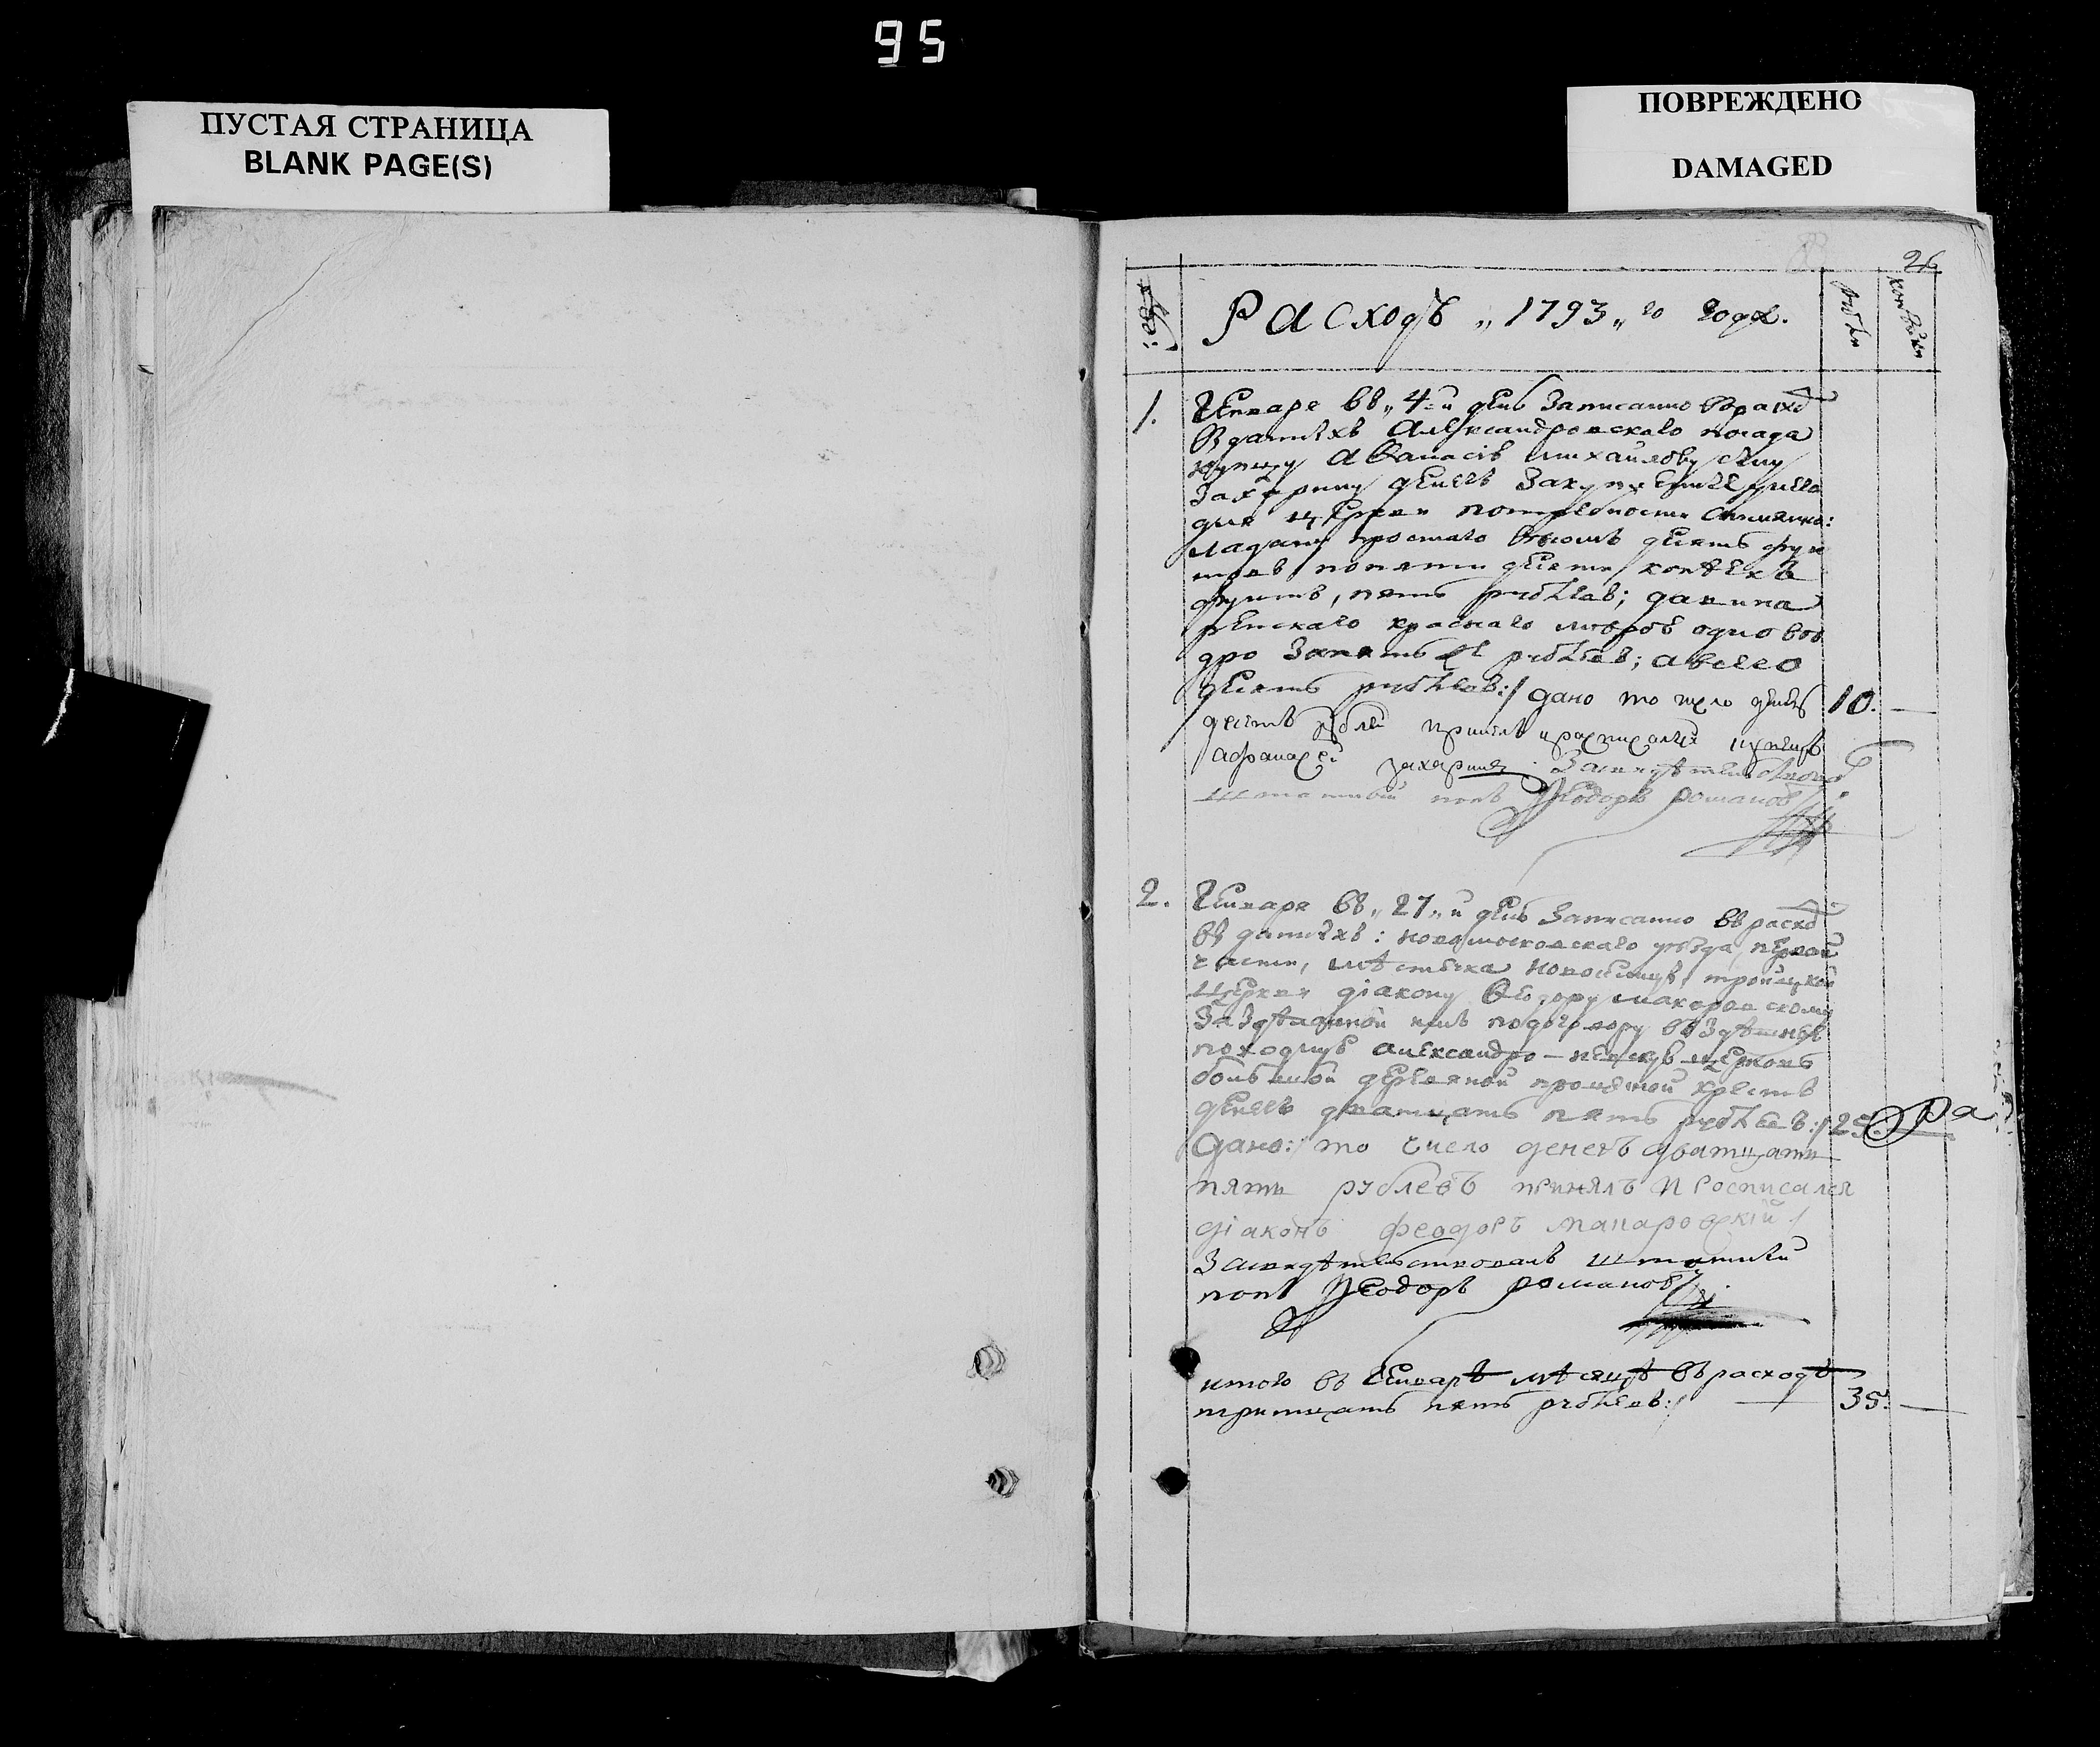 95
ПУСТАЯ СТРАНИЦА
BLANK PAGE(S)
ПОВРЕЖДЕНО
DAMAGED
26
Расходъ „1793„ го года.
рубли
копѣйки
1. Генваря въ „4=й день записанно въ расхо
въ датчѣхъ Александровскаго посада
купцу Аѳанасію михайлову сыну
Захарину денегъ за
для церкви потребности
ладану простаго вѣсомъ десять фун
товъ попяти десяти копѣекъ
фунтъ, пять рублевъ; да вина
ренскаго краснаго одно вѣ
дро за пять рублевъ; а всего
десять рублевъ:/ дано то число денегъ 10. —
десеть рублей принелъ и росписался купецъ
афанасей захаринъ Засвидѣтельствова
штатный попъ Ѳеодоръ Романовъ
2. Генваря въ „27„й день записанно въ расхо
въ датчѣхъ: новомосковскаго уѣзда, первой
части, мѣстечка новоселицы, тройцкой
церкви діакону Ѳеодору макаровскому
за здѣланной имъ подоговору въ здѣшнюю
походную александро-невскую церковь
большой деревяной крестъ
денегъ дватцать пять рублевъ:/ 25. —
Дано:/ то число денегъ дватцать
пять рублевъ принялъ и росписался
діаконъ феодоръ макаровскій
Засвидѣтельствовалъ штатный
попъ Ѳеодоръ Романовъ
итого въ генварѣ мѣсяцѣ въ расходѣ
тритцать пять рублевъ:/ — 35. —